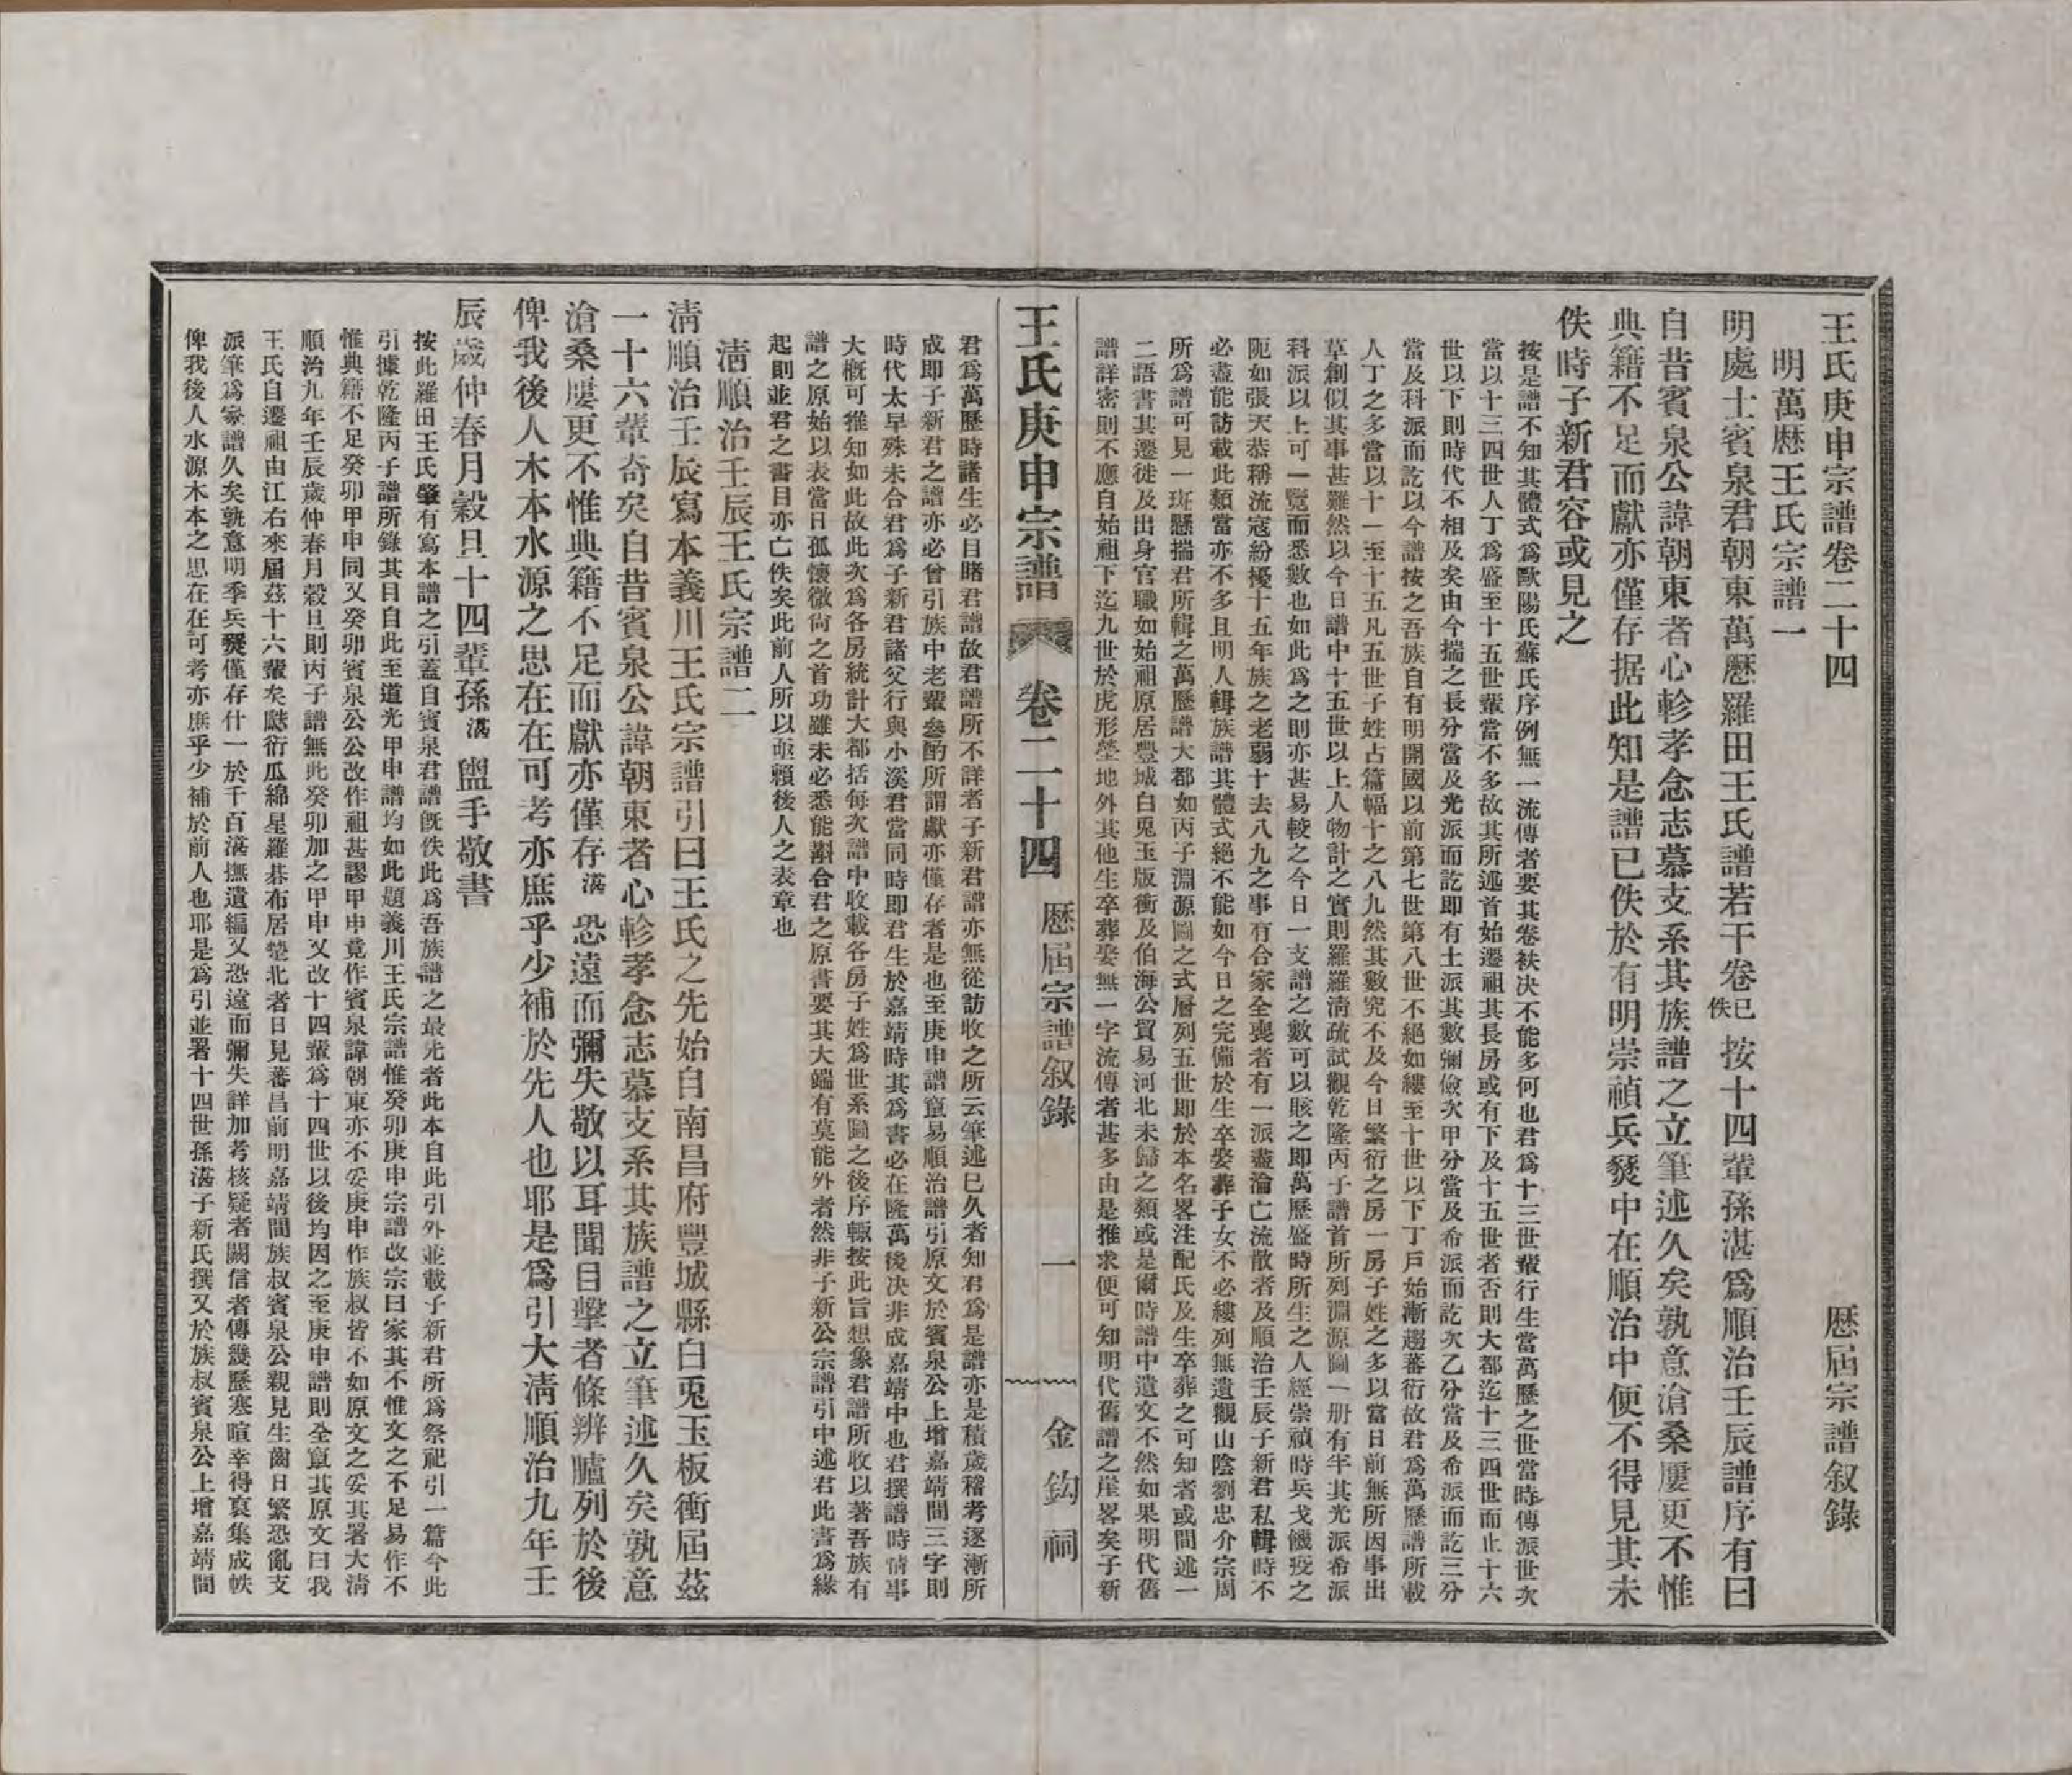 王氏庚申宗譜卷二十四　歷屆宗譜叙錄
明萬歷王氏宗譜一
明處士賓泉君朝東萬歷羅田王氏譜若干卷已佚按十四輩孫湛爲順治壬辰譜序有曰
自昔賓泉公諱朝東者心軫孝念志慕支系其族譜之立筆述久矣孰意滄桑屢更不惟
典籍不足而獻亦僅存据此知是譜已佚於有明崇禎兵燹中在順治中便不得見其未
佚時子新君容或見之
按是譜不知其體式爲歐陽氏蘇氏序例無一流傳者要其卷袟决不能多何也君爲十三世輩行生當萬歷之世當時傳派世次
當以十三四世人丁爲盛至十五世輩當不多故其所述首始遷祖其長房或有下及十五世者否則大都迄十三四世而止十六
世以下則時代不相及矣由今揣之長分當及光派而訖即有士派其數彌儉次甲分當及希派而訖次乙分當及希派而訖三分
當及科派而訖以今譜按之吾族自有明開國以前第七世第八世不絕如縷至十世以下丁戶始漸趨蕃衍故君爲萬歷譜所載
人丁之多當以十一至十五凡五世子姓占篇幅十之八九然其數究不及今日繁衍之房一房子姓之多以當日前無所因事出
草創似其事甚難然以今日譜中十五世以上人物計之實則羅羅淸疏試觀乾隆丙子譜首所列淵源圖一册有半其光派希派
科派以上可一覽而悉數也如此爲之則亦甚易較之今日一支譜之數可以賅之即萬歷盛時所生之人經崇禎時兵戈饑疫之
阨如張天恭稱流寇紛擾十五年族之老弱十去八九之事有合家全喪者有一派盡淪亡流散者及順治壬辰子新君私輯時不
必盡能訪載此類當亦不多且明人輯族譜其體式絕不能如今日之完備於生卒娶葬子女不必縷列無遺觀山陰劉忠介宗周
所爲譜可見一斑懸揣君所輯之萬歷譜大都如丙子淵源圖之式層列五世即於本名畧注配氏及生卒葬之可知者或間述一
二語書其遷徙及出身官職如始祖原居豐城白兎玉版衝及伯海公貿易河北未歸之類或是爾時譜中遺文不然如果明代舊
譜詳密則不應自始祖下迄九世於虎形塋地外其他生卒葬娶無一字流傳者甚多由是推求便可知明代舊譜之崖畧矣子新
王氏庚申宗譜　卷二十四　歷屆宗譜叙錄　一　金鈎祠
君爲萬歷時諸生必目睹君譜故君譜所不詳者子新君譜亦無從訪收之所云筆述已久者知君爲是譜亦是積歲稽考逐漸所
成即子新君之譜亦必曾引族中老輩參酌所謂獻亦僅存者是也至庚申譜竄易順治譜引原文於賓泉公上增嘉靖間三字則
時代太早殊未合君爲子新君諸父行與小溪君當同時即君生於嘉靖時其爲書必在隆萬後決非成嘉靖中也君撰譜時情事
大槪可推知如此故此次爲各房統計大都括每次譜中收載各房子姓爲世系圖之後序輒按此旨想象君譜所收以著吾族有
譜之原始以表當日孤懷微尙之首功雖未必悉能斠合君之原書要其大端有莫能外者然非子新公宗譜引中述君此書爲緣
起則並君之書目亦亡佚矣此前人所以亟賴後人之表章也
淸順治壬辰王氏宗譜二
淸順治壬辰寫本義川王氏宗譜引曰王氏之先始自南昌府豐城縣白兎玉板衝屆茲
一十六輩奇矣自昔賓泉公諱朝東者心軫孝念志慕支系其族譜之立筆述久矣孰意
滄桑屢更不惟典籍不足而獻亦僅存湛恐遠而彌失敬以耳聞目擊者條辨臚列於後
俾我後人木本水源之思在在可考亦庶乎少補於先人也耶是爲引大淸順治九年壬
辰歲仲春月穀旦十四輩孫湛盥手敬書
按此羅田王氏肇有寫本譜之引蓋自賓泉君譜旣佚此爲吾族譜之最先者此本自此引外並載子新君所爲祭祀引一篇今此
引據乾隆丙子譜所錄其目自此至道光甲申譜均如此題義川王氏宗譜惟癸卯庚申宗譜改宗曰家其不惟文之不足易作不
惟典籍不足癸卯甲申同又癸卯賓泉公公改作祖甚謬甲申竟作賓泉諱朝東亦不妥庚申作族叔皆不如原文之妥其署大淸
順治九年壬辰歲仲春月穀旦則丙子譜無此癸卯加之甲申又改十四輩爲十四世以後均因之至庚申譜則全竄其原文曰我
王氏自遷祖由江右來屆茲十六輩矣瓞衍瓜綿星羅棊布居楚北者日見蕃昌前明嘉靖間族叔賓泉公親見生齒日繁恐亂支
派筆爲家譜久矣孰意明季兵燹僅存什一於千百湛撫遺編又恐遠而彌失詳加考核疑者闕信者傳幾歷寒暄幸得裒集成帙
俾我後人水源木本之思在在可考亦庶乎少補於前人也耶是爲引並署十四世孫湛子新氏撰又於族叔賓泉公上增嘉靖間